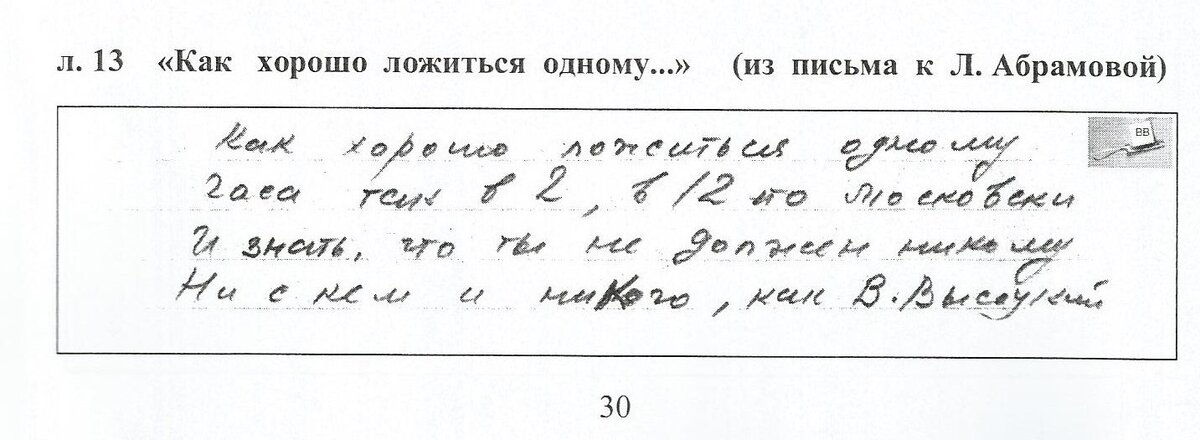 л. 13 «Как хорошо ложиться одному...» (из письма к Л. Абрамовой)
ВВ
Как хорошо ложиться одному
Часа так в 2, в 12 по московски
И знать, что ты не должен никому
Ни с кем и никого, как В. Высоцкий
30